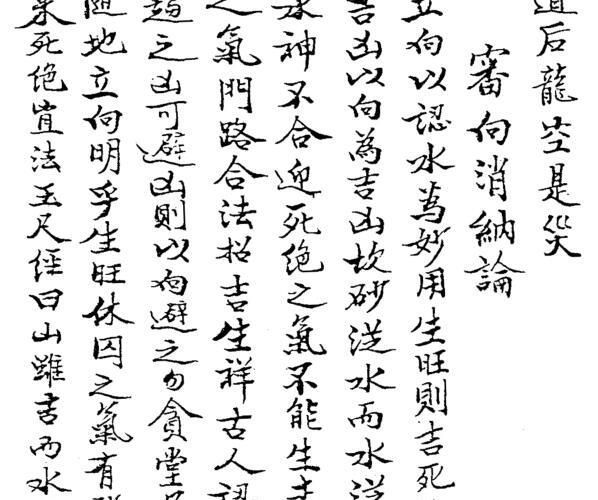 道后龍空是災
審向消納論
立向以認水為妙用生旺則吉死
吉凶以向為吉凶故砂從水而水從
水神不合迎死絶之氣不能生
之氣門路合法招吉生祥古人認
趨之凶可避凶則以向避之勿貪堂
隨地立向明乎生旺休囚之氣有
來死絶豈法玉尺經曰山雖吉而水